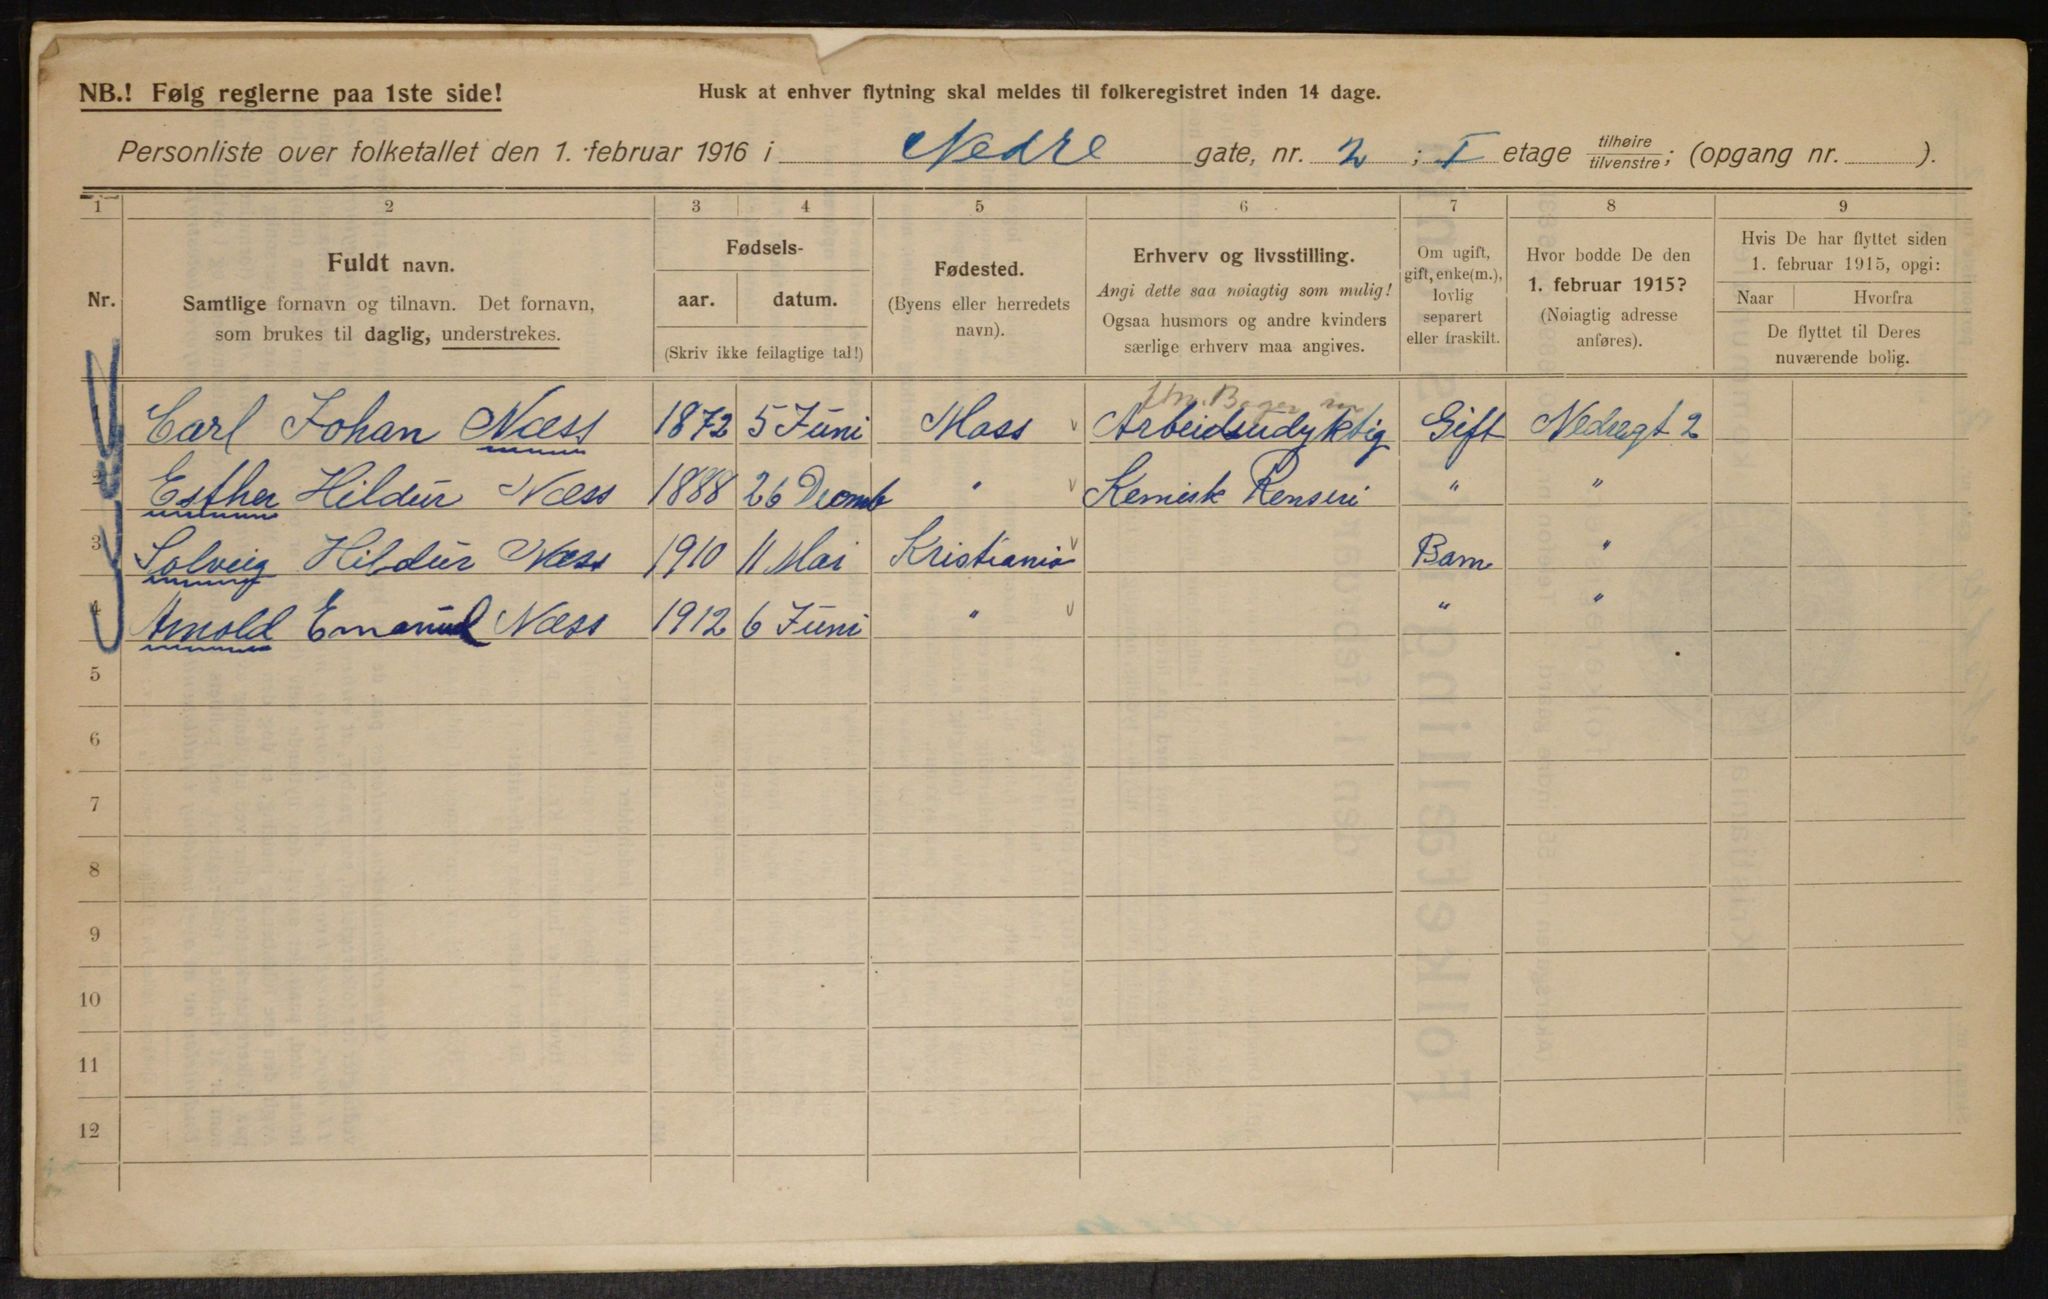 NB.! Følg reglerne paa 1ste side! Husk at enhver flytning skal meldes til folkeregistret inden 14 dage.
Personliste over folketallet den 1. februar 1916 i Nedre gate, nr. 2 ; I etage tilhøire/tilvenstre; (opgang nr. ).
1 2 3 4 5 6 7 8 9
Nr.
Fuldt navn.
Samtlige fornavn og tilnavn. Det fornavn,
som brukes til daglig, understrekes.
Fødsels-
aar. datum.
(Skriv ikke feilagtige tal!)
Fødested.
(Byens eller herredets
navn).
Erhverv og livsstilling.
Angi dette saa nøiagtig som mulig!
Ogsaa husmors og andre kvinders
særlige erhverv maa angives.
Om ugift,
gift, enke(m.),
lovlig
separert
eller fraskilt.
Hvor bodde De den
1. februar 1915?
(Nøiagtig adresse
anføres).
Hvis De har flyttet siden
1. februar 1915, opgi:
Naar Hvorfra
De flyttet til Deres
nuværende bolig.
Carl Johan Næss 1872 5 Juni Moss Arbeidsudyktig Gift Nedregt 2
2 Esther Hildur Næss 1888 26 Decmb " Kemisk Renseri " "
3 Solveig Hildur Næss 1910 11 Mai Kristiania Barn "
4 Arnold Emanuel Næss 1912 6 Juni " " "
5
6
7
8
9
10
11
12